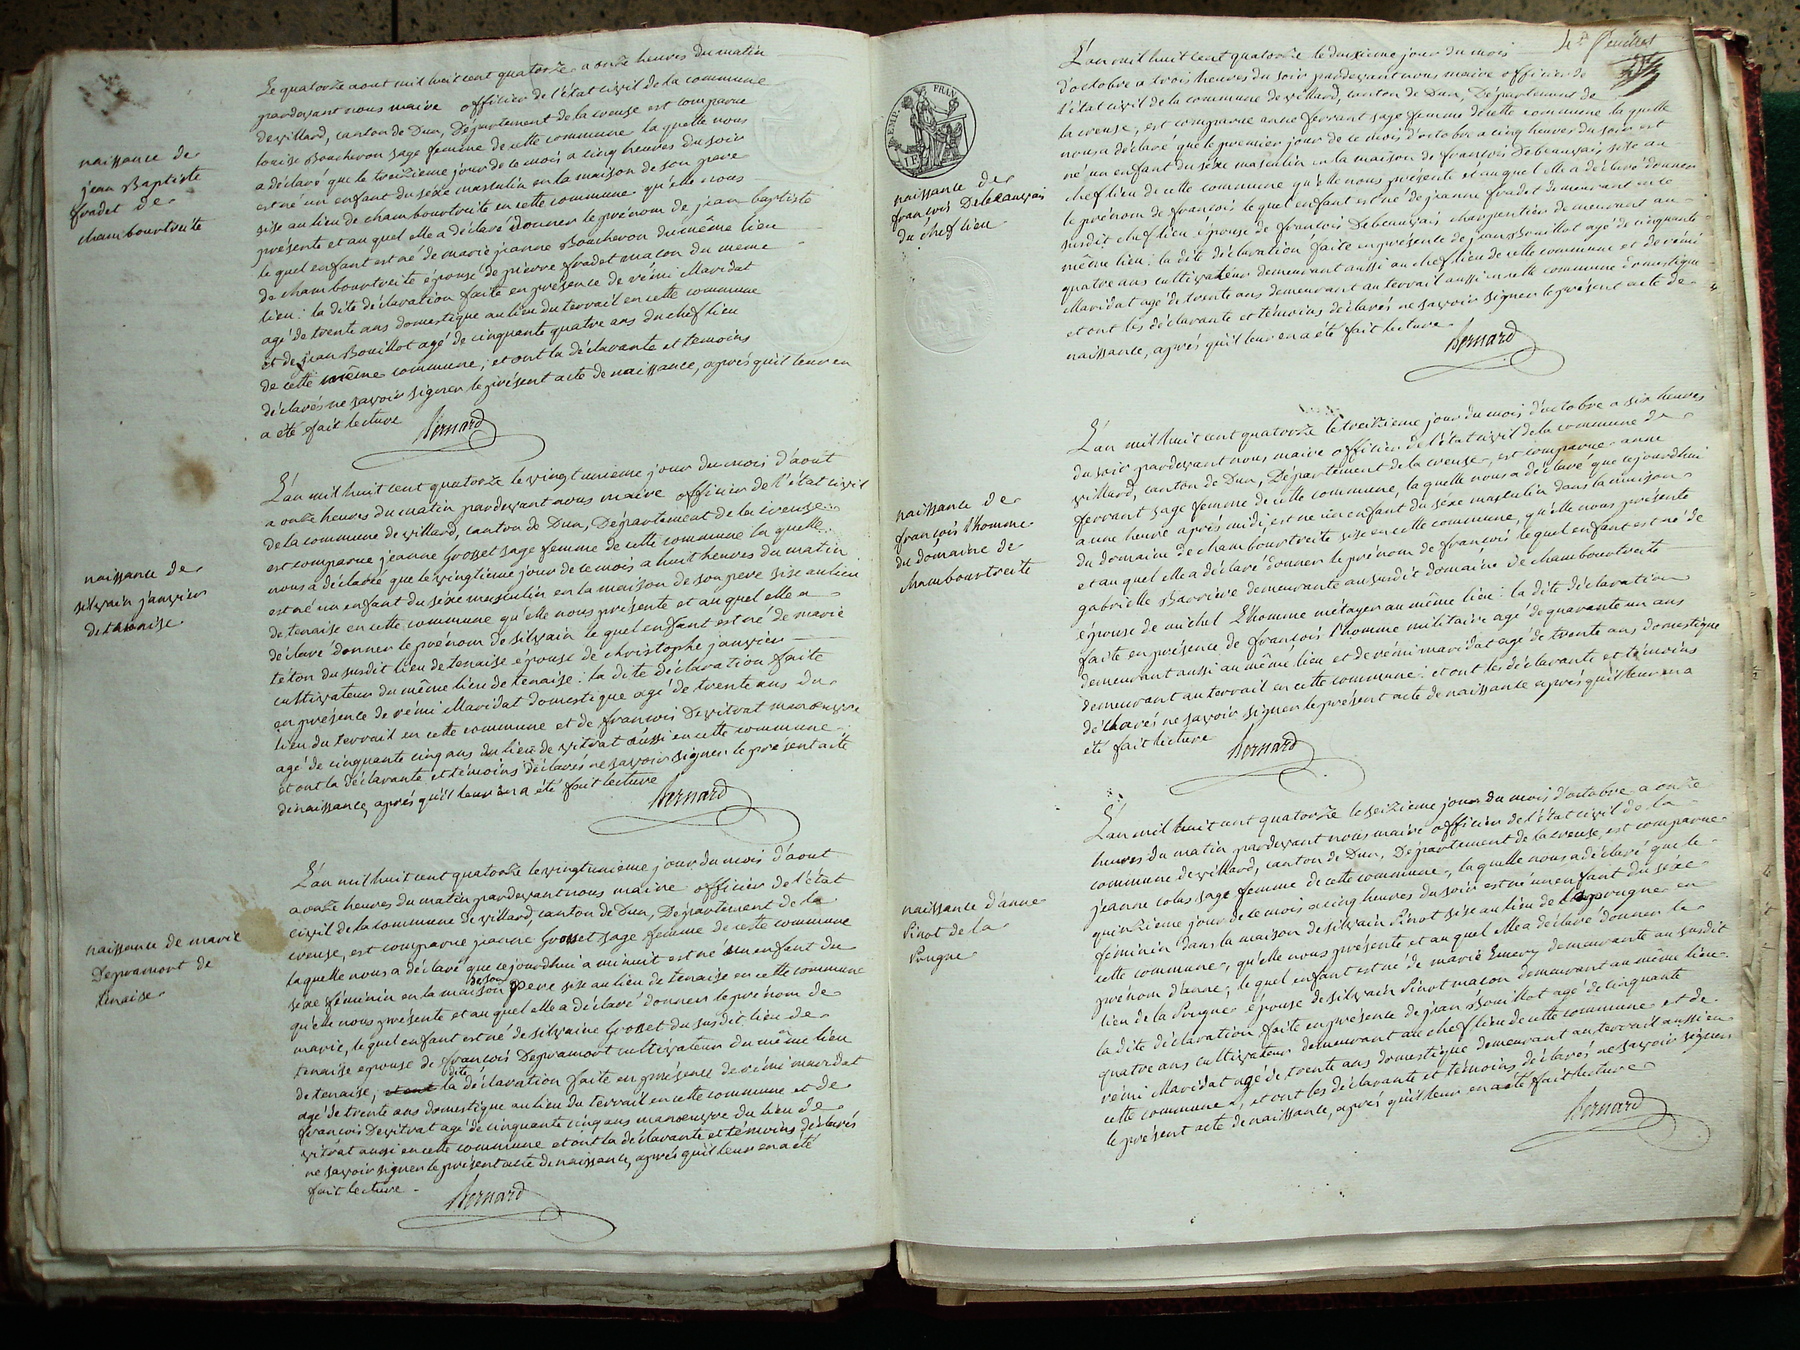 naissance de
jean Baptiste
fradet de
chambourtreite
Le quatorze aout mil huit cent quatorze a onze heures du matin
pardevant nous maire officier de l'état civil de la commune
de villard, canton de Dun, Département de la creuse est comparue
louise Boucheron sage femme de cette commune la quelle nous
a déclaré que le treizieme jour de ce mois a cinq heures du soir
est né un enfant du séxe masculin en la maison de son pere
sise au lieu de chambourtreite en cette commune qu'elle nous
présente et au quel elle a déclaré donner le prénom de jean baptiste
le quel enfant est né de marie jeanne Boucheron du même lieu
de chambourtreite épouse de pierre fradet macon du meme
lieu : la dite déclaration faite en présence de rémi Maridat
agé de trente ans domestique au lieu du terrail en cette commune
et de jean Bouillot agé de cinquante quatre ans du chef lieu
de cette même commune ; et ont la déclarante et temoins
déclarés ne savoir signer le présent acte de naissance, après qu'il leur en
a été fait lecture Bernard
naissance de
silvain janvier
de thenaise
L'an mil huit cent quatorze le vingt unieme jour du mois d'aout
a onze heures du matin pardevant nous maire officier de l'état civil
de la commune de villard, canton de Dun, Département de la creuse
est comparue jeanne Grosset sage femme de cette commune la quelle
nous a déclaré que le vingtieme jour de ce mois a huit heures du matin
est né un enfant du séxe masculin en la maison de son pere sise au lieu
de tenaise en cette commune qu'elle nous présente et au quel elle a
déclaré donner le prénom de silvain le quel enfant est né de marie
téton du susdit lieu de tenaise épouse de christophe janvier
cultivateur du même lieu de tenaise : la dite déclaration faite
en présence de rémi Maridat domestique agé de trente ans du
lieu du terrail en cette commune et de francois Devitrat manoeuvre
agé de cinquante cinq ans du lieu de vitrat aussi en cette commune
et ont la déclarante et témoins déclarés ne savoir signer le présent acte
de naissance, après qu'il leur en a été fait lecture
Bernard
naissance de marie
Depramont de
tenaise
L'an mil huit cent quatorze le vingt unieme jour du mois d'aout
a onze heures du matin pardevant nous maire officier de l'état
civil de la commune de villard, canton de Dun, Département de la
creuse, est comparue jeanne Grosset sage femme de cette commune
laquelle nous a déclaré que ce jourdhui a minuit est né un enfant du
séxe féminin en la maison de son pere sise au lieu de tenaise en cette commune
qu'elle nous présente et au quel elle a déclaré donner le prénom de
marie, le quel enfant est né de silvaine Grosset du susdit lieu de
tenaise epouse de françois Depramont cultivateur du même lieu
de tenaise, la dite déclaration faite en présence de rémi maridat
agé de trente ans domestique au lieu du terrail en cette commune et de
francois Devitrat agé de cinquante cinq ans manoeuvre du lieu de
vitrat aussi en cette commune et ont la déclarante et témoins déclarés
ne savoir signer le présent acte de naissance, après qu'il leur en a été
fait lecture.
Bernard
4e feuillet
FRAN
naissance de
françois Debeauvais
du chef lieu
L'an mil huit cent quatorze le deuxieme jour du mois
d'octobre a trois heures du soir pardevant nous maire officier de
l'état civil de la commune de villard, canton de Dun, Département de
la creuse, est comparue anne ferrant sage femme de cette commune la quelle
nous a déclaré que le premier jour de ce mois d'octobre a cinq heures du soir est
né un enfant du séxe masculin en la maison de françois Debeauvais sise au
chef lieu de cette commune qu'elle nous présente et au quel elle a déclaré donner
le prénom de francois le quel enfant est né de jeanne fradet demeurant en le
susdit chef lieu épouse de francois Debeauvais charpentier demeurant au
même lieu : la dite déclaration faite en présence de jean Bouillot agé de cinquante
quatre ans cultivateur demeurant aussi au chef lieu de cette commune et de rémi
Maridat agé de trente ans demeurant au terrail aussi en cette commune domestique
et ont les déclarante et témoins déclarés ne savoir signer le présent acte de
naissance, après qu'il leur en a été fait lecture
Bernard
naissance de
françois l'homme
du domaine de
chambourtreite
L'an mil huit cent quatorze le treizieme jour du mois d'octobre a six heures
du soir pardevant nous maire officier de l'état civil de la commune de
villard, canton de Dun, Département de la creuse, est comparue anne
ferrant sage femme de cette commune, la quelle nous a déclaré que ce jourdhui
a une heure après midi est né un enfant du séxe masculin dans la maison
du domaine de chambourtreite sise en cette commune, qu'elle nous présente
et au quel elle a déclaré donner le prénom de francois le quel enfant est né de
gabrielle Barrive demeurante au susdit domaine de chambourtreite
épouse de michel L'homme métayer au même lieu : la dite déclaration
faite en présence de françois l'homme militaire agé de quarante un ans
demeurant aussi au même lieu et de rémi maridat agé de trente ans domestique
demeurant au terrail en cette commune : et ont les déclarante et témoins
déclarés ne savoir signer le présent acte de naissance après qu'il leur en a
été fait lecture Bernard
naissance d'anne
Pinot de la
Pougne
L'an mil huit cent quatorze le seizieme jour du mois d'octobre a onze
heures du matin pardevant nous maire officier de l'état civil de la
commune de villard, canton de Dun, Département de la creuse, est comparue
jeanne colas sage femme de cette commune, la quelle nous a déclaré que le
quinzieme jour de ce mois a cinq heures du soir est né un enfant du séxe
féminin dans la maison de silvain Pinot sise au lieu de la pougne en
cette commune, qu'elle nous présente et au quel elle a déclaré donner le
prénom d'anne, le quel enfant est né de marie Emery demeurante au susdit
lieu de la Pougne épouse de silvain Pinot macon demeurant au même lieu
la dite déclaration faite en présence de jean Bouillot agé de cinquante
quatre ans cultivateur demeurant au chef lieu de cette commune et de
rémi Maridat agé de trente ans domestique demeurant au terrail aussi en
cette commune, et ont les déclarante et témoins déclarés ne savoir signer
le présent acte de naissance, après qu'il leur en a été fait lecture
Bernard